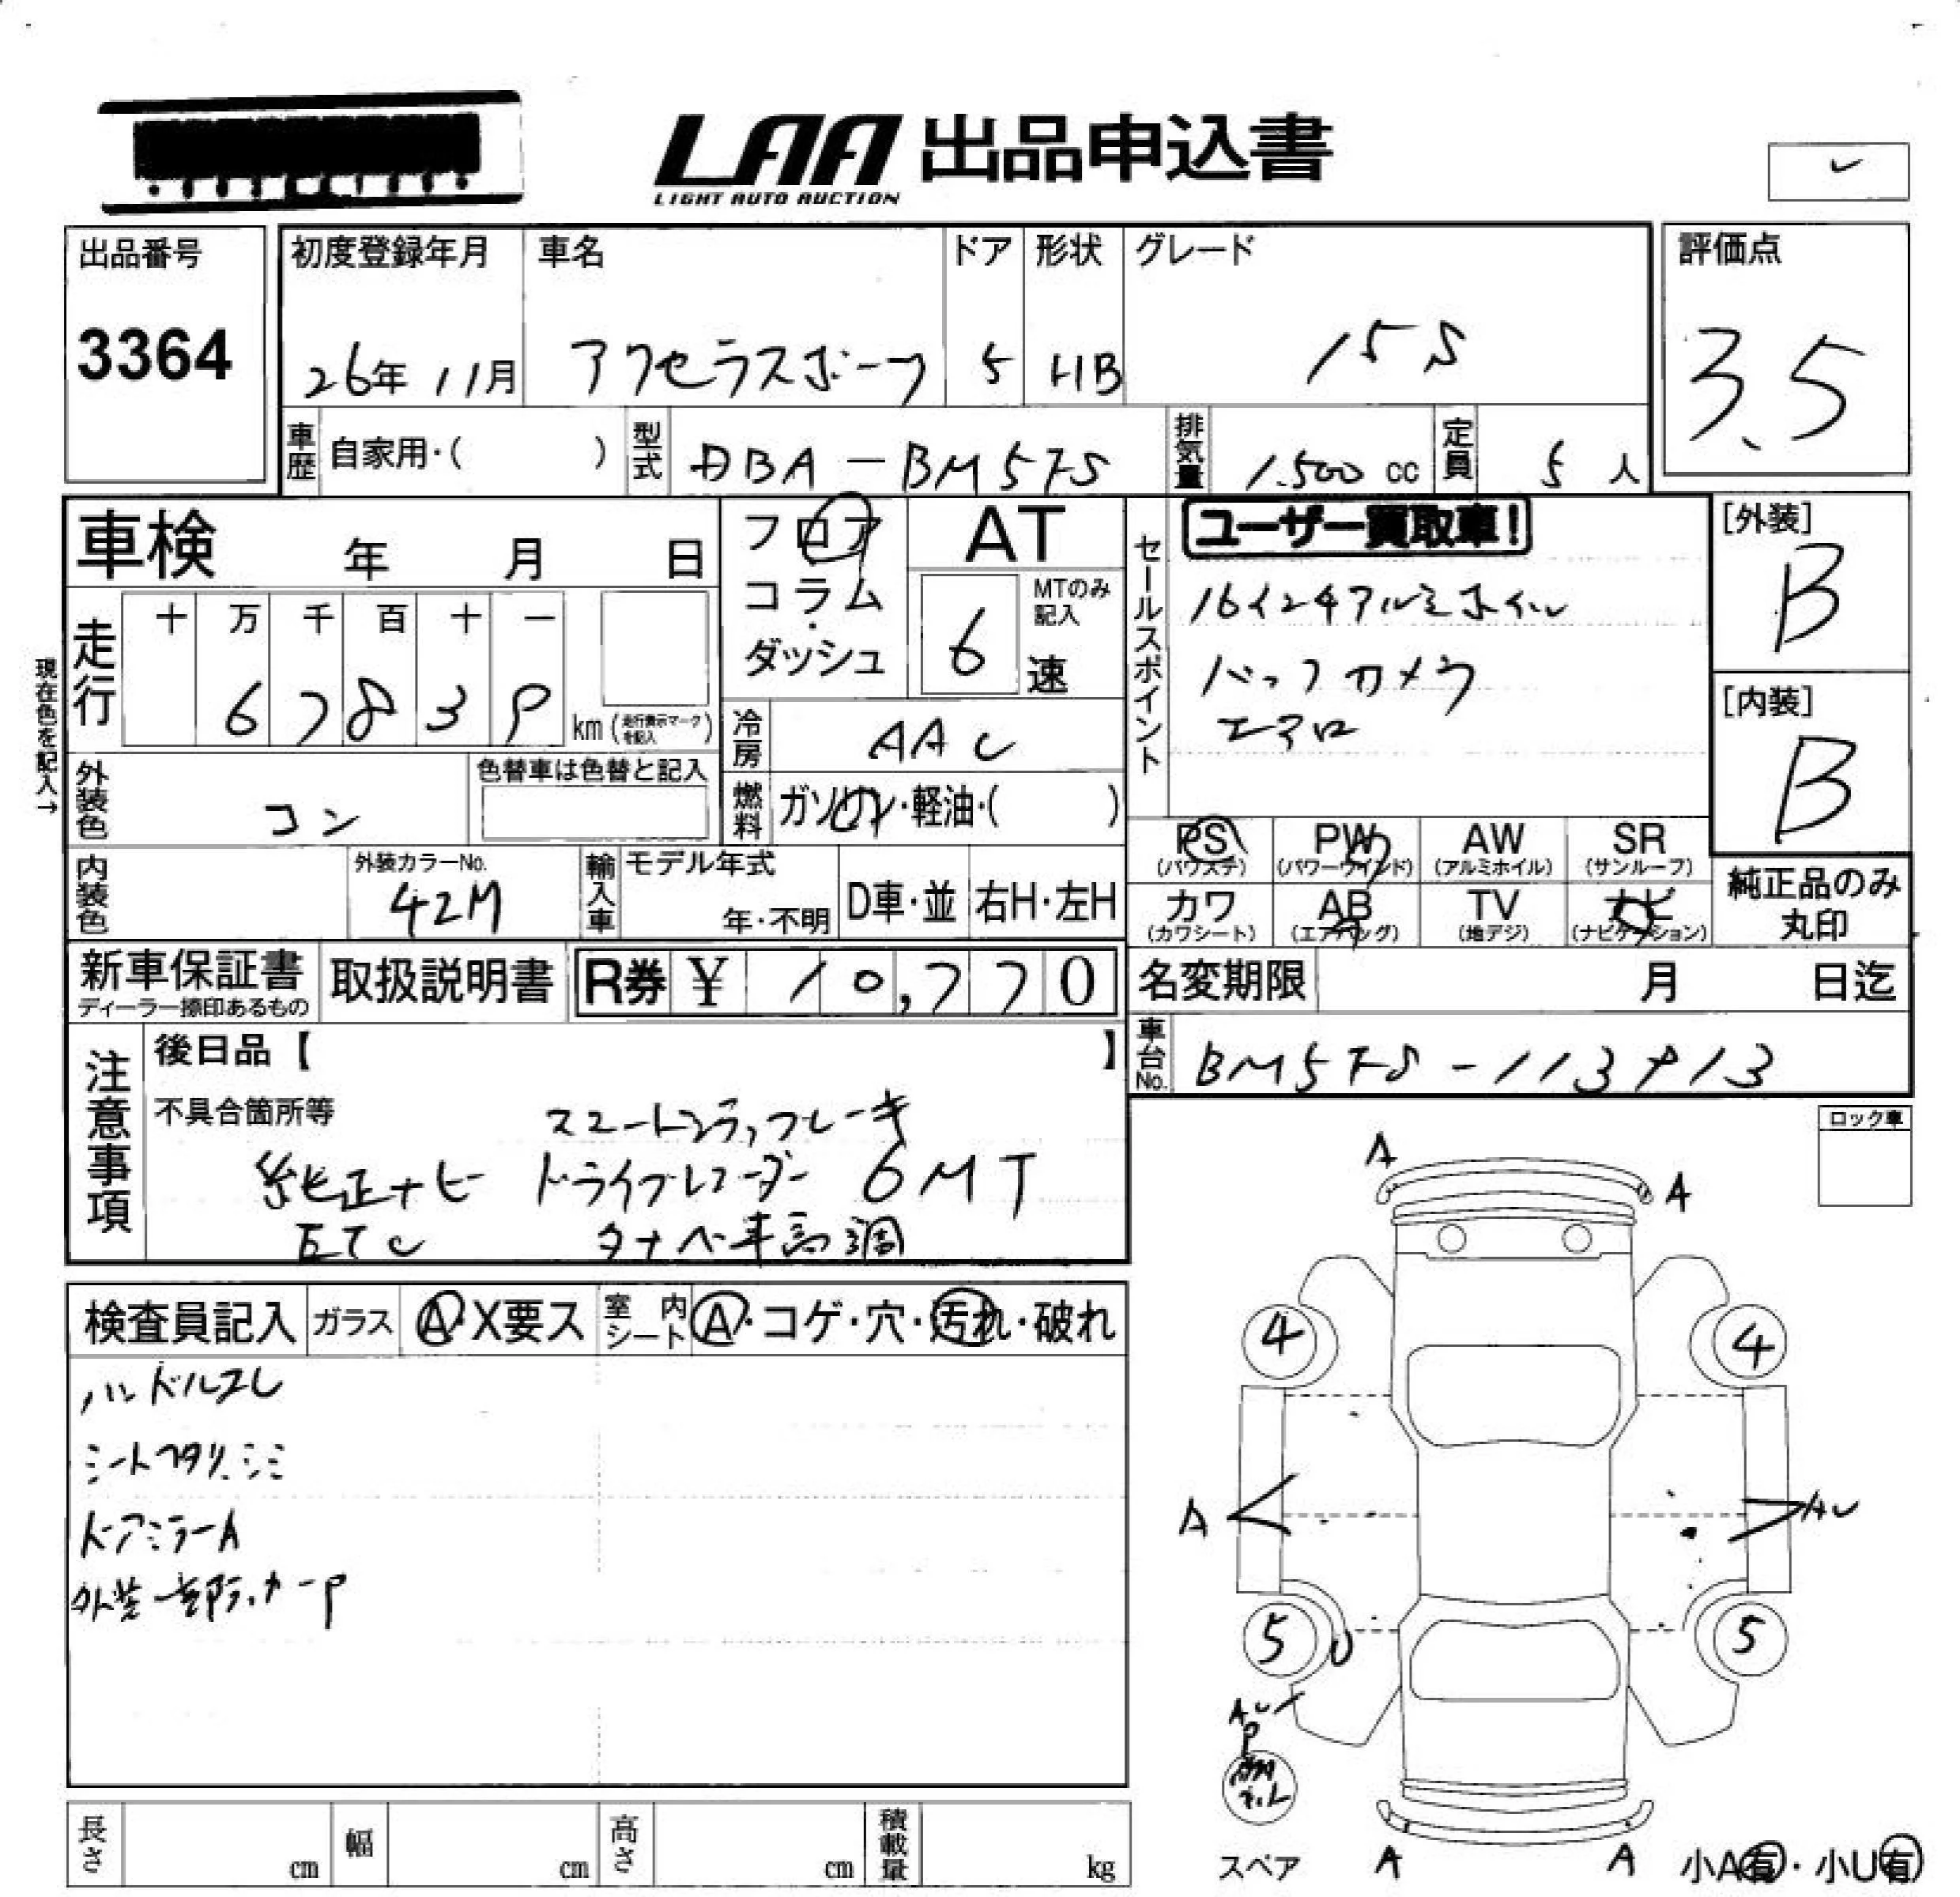 LAA 出品申込書
LIGHT AUTO AUCTION
出品番号
3364
初度登録年月
26年 11月
車名
アクセラスポーツ
ドア
5
形状
HB
グレード
15S
評価点
3.5
車歴 自家用・( )
型式 DBA-BM5FS
排気量 1.500 cc
定員 5 人
車検 年 月 日
フロア
コラム
・
ダッシュ
AT
6 速
MTのみ
記入
セールスポイント
ユーザー買取車!
16インチアルミホイル
バックカメラ
エアロ
[外装]
B
[内装]
B
現在色を記入→
走行
十 万 千 百 十 一
6 7 8 3 9 km (走行表示マークを記入)
冷房 AAC
燃料 ガソリン・軽油・( )
外装色 コン
色替車は色替と記入
内装色
外装カラーNo.
42M
輸入車
モデル年式
年・不明
D車・並
右H・左H
PS
(パワステ)
PW
(パワーウインド)
AW
(アルミホイル)
SR
(サンルーフ)
カワ
(カワシート)
AB
(エアバッグ)
TV
(地デジ)
ナビ
(ナビゲーション)
純正品のみ
丸印
新車保証書
ディーラー捺印あるもの
取扱説明書
R券 ¥ 10,770
名変期限 月 日迄
車台No. BM5FS-113913
注意事項
後日品【 】
不具合箇所等
スマートシティブレーキ
純正ナビ ドライブレコーダー 6MT
ETC タナベ車高調
ロック車
検査員記入
ガラス A・X要ス
室内シート A・コゲ・穴・汚れ・破れ
ハンドルスレ
シートヘタリ、シミ
ドアミラーA
外装一部ラッカーP
A
A
4
4
A
AU
5
U
5
AU
P
スペア
A
A
小A有・小U有
長さ cm
幅 cm
高さ cm
積載量 kg